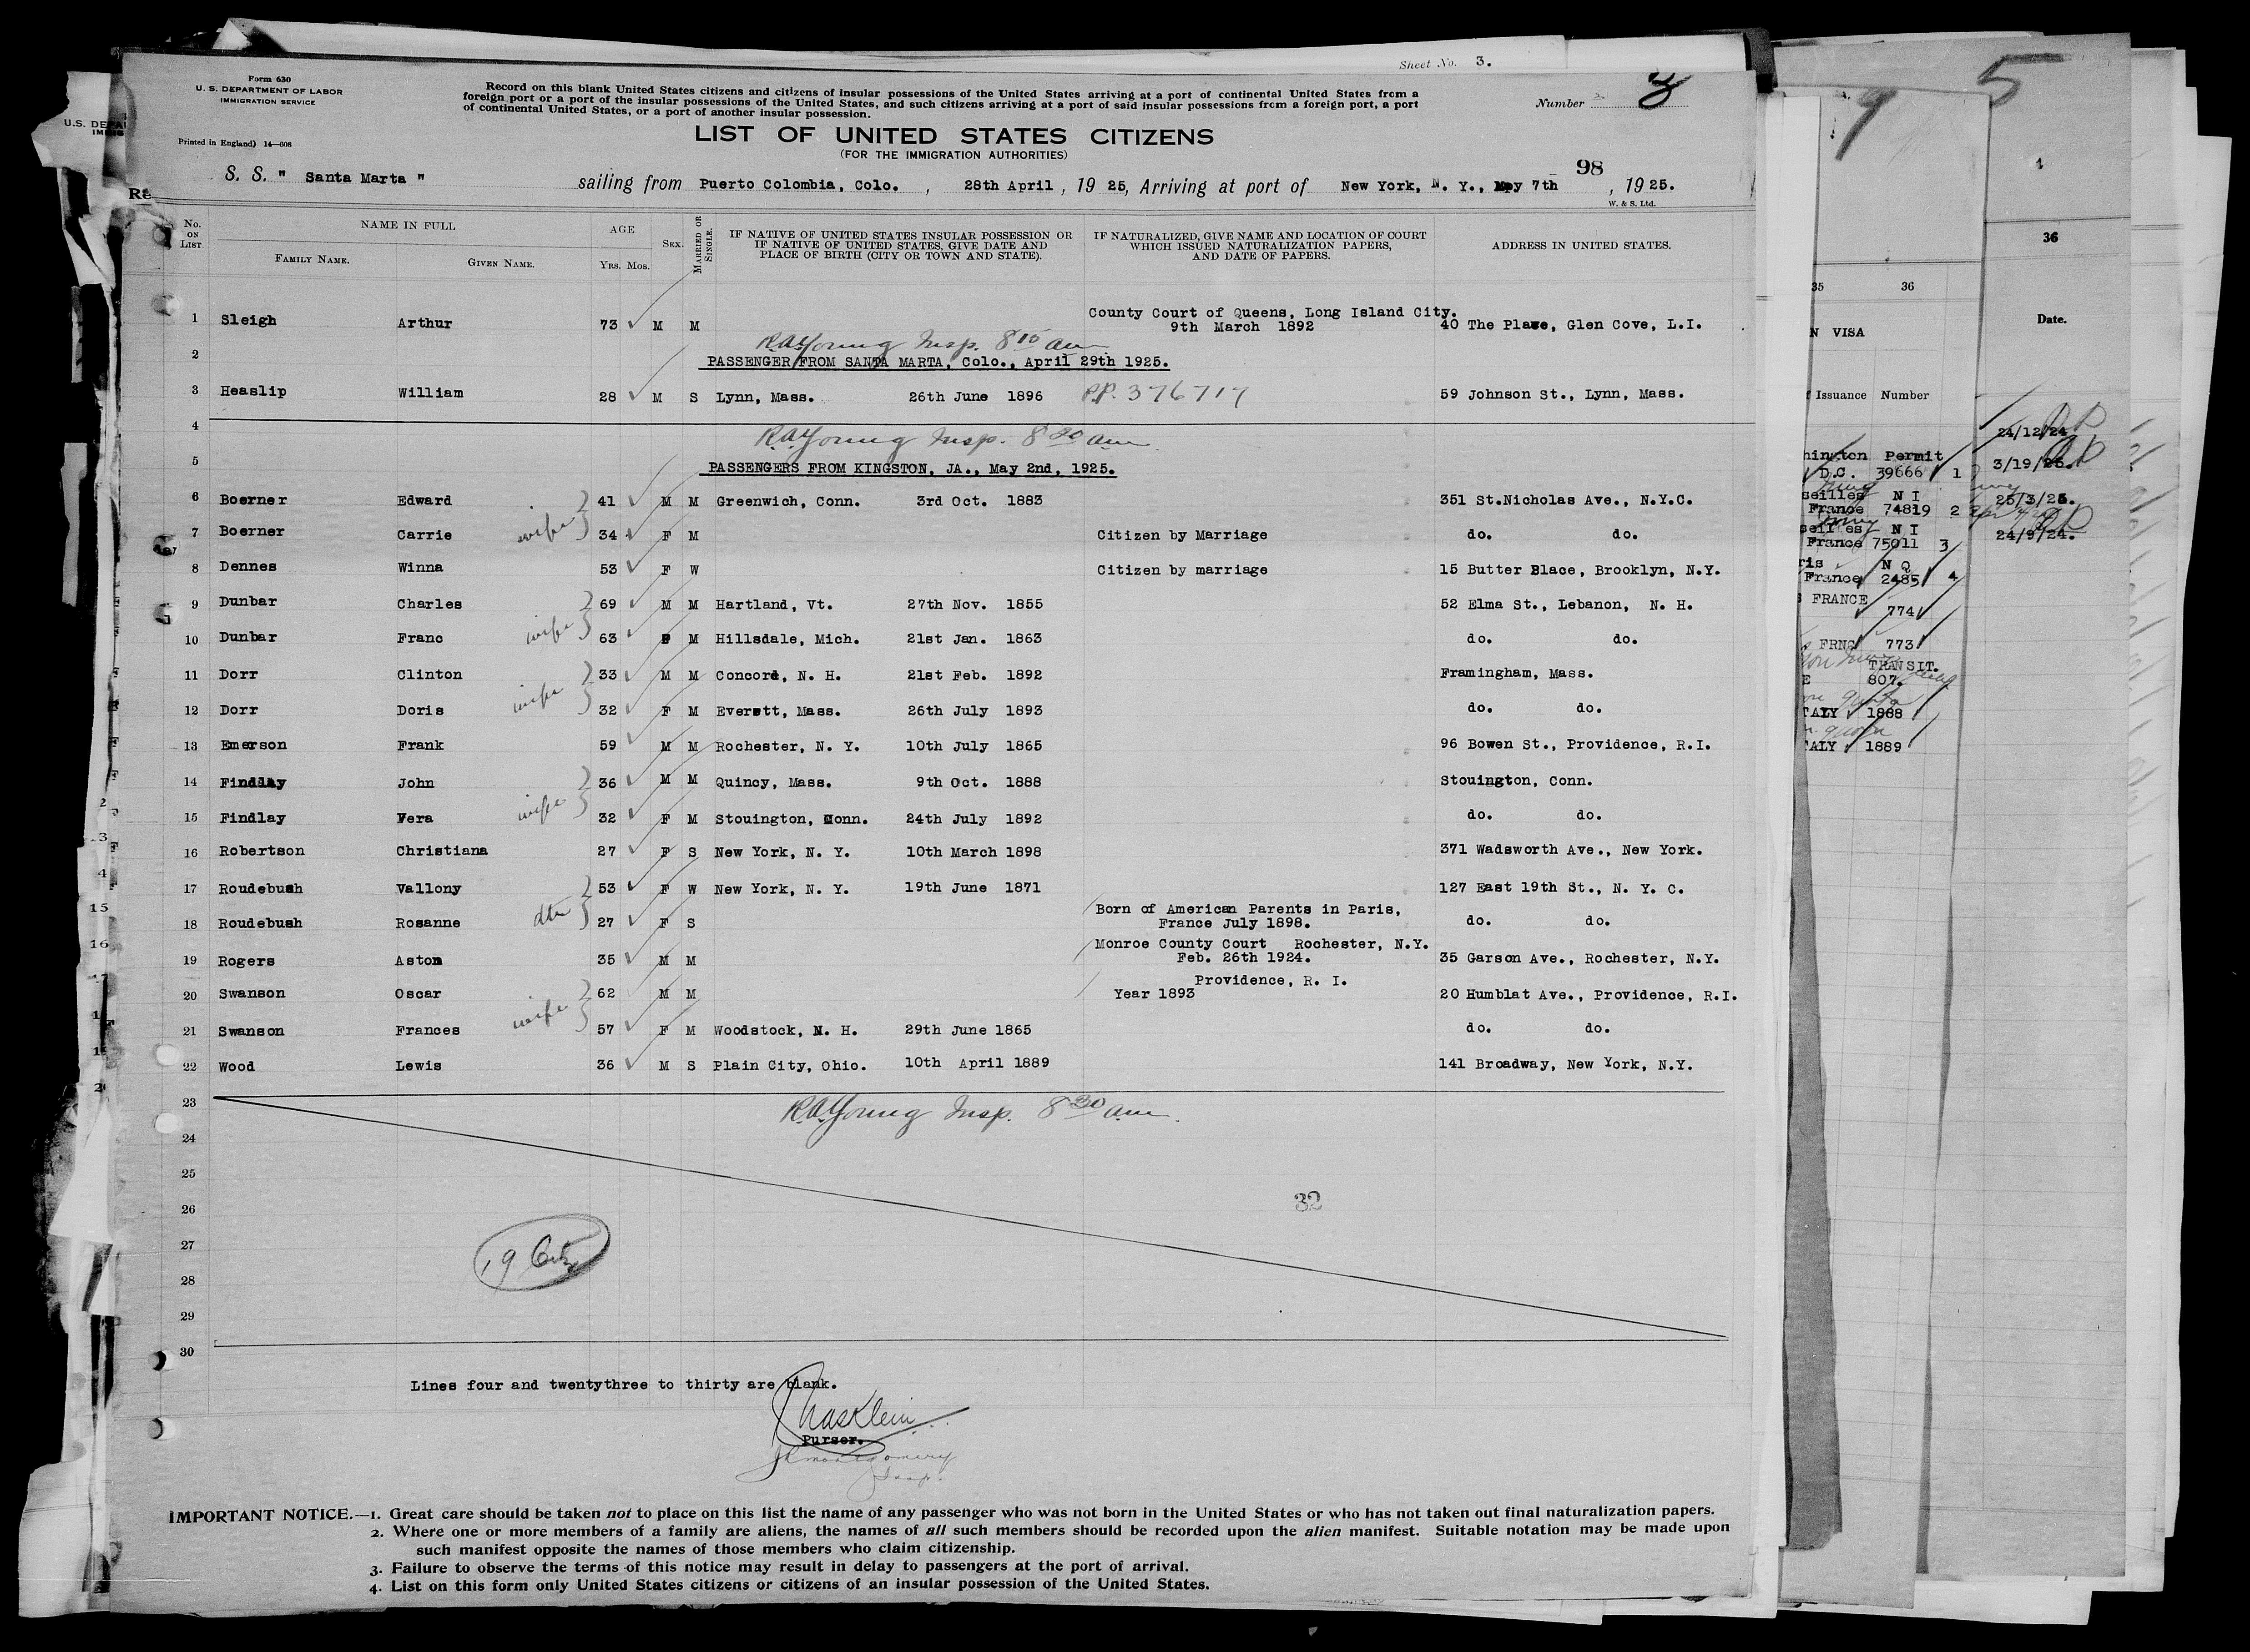 Sheet No. 3.
Form 630
U. S. DEPARTMENT OF LABOR
IMMIGRATION SERVICE
Printed in England) 14—608
Record on this blank United States citizens and citizens of insular possessions of the United States arriving at a port of continental United States from a
foreign port or a port of the insular possessions of the United States, and such citizens arriving at a port of said insular possessions from a foreign port, a port
of continental United States, or a port of another insular possession.
Number 3
LIST OF UNITED STATES CITIZENS
(FOR THE IMMIGRATION AUTHORITIES)
98
S. S. " Santa Marta " sailing from Puerto Colombia, Colo. , 28th April , 19 25, Arriving at port of New York, N. Y., May 7th , 19 25.
W. & S. Ltd.
No. ON LIST NAME IN FULL AGE SEX. MARRIED OR SINGLE. IF NATIVE OF UNITED STATES INSULAR POSSESSION OR IF NATIVE OF UNITED STATES, GIVE DATE AND PLACE OF BIRTH (CITY OR TOWN AND STATE). IF NATURALIZED, GIVE NAME AND LOCATION OF COURT WHICH ISSUED NATURALIZATION PAPERS, AND DATE OF PAPERS. ADDRESS IN UNITED STATES.
FAMILY NAME. GIVEN NAME. YRS. MOS.
County Court of Queens, Long Island City.
1 Sleigh Arthur 73 M M 9th March 1892 40 The Place, Glen Cove, L.I.
R.A.Young Insp. 8 10 am
2 PASSENGER FROM SANTA MARTA, Colo., April 29th 1925.
3 Heaslip William 28 M S Lynn, Mass. 26th June 1896 P.P. 376717 59 Johnson St., Lynn, Mass.
4
R.A.Young Insp. 8 20 am
5 PASSENGERS FROM KINGSTON, JA., May 2nd, 1925.
6 Boerner Edward 41 M M Greenwich, Conn. 3rd Oct. 1883 351 St.Nicholas Ave., N.Y.C.
7 Boerner Carrie wife 34 F M Citizen by Marriage do. do.
8 Dennes Winna 53 F W Citizen by marriage 15 Butter Place, Brooklyn, N.Y.
9 Dunbar Charles 69 M M Hartland, Vt. 27th Nov. 1855 52 Elma St., Lebanon, N. H.
10 Dunbar Franc wife 63 F M Hillsdale, Mich. 21st Jan. 1863 do. do.
11 Dorr Clinton 33 M M Concord, N. H. 21st Feb. 1892 Framingham, Mass.
12 Dorr Doris wife 32 F M Everett, Mass. 26th July 1893 do. do.
13 Emerson Frank 59 M M Rochester, N. Y. 10th July 1865 96 Bowen St., Providence, R.I.
14 Findlay John 36 M M Quincy, Mass. 9th Oct. 1888 Stouington, Conn.
15 Findlay Vera wife 32 F M Stouington, Conn. 24th July 1892 do. do.
16 Robertson Christiana 27 F S New York, N. Y. 10th March 1898 371 Wadsworth Ave., New York.
17 Roudebush Vallony 53 F W New York, N. Y. 19th June 1871 127 East 19th St., N. Y. C.
Born of American Parents in Paris,
18 Roudebush Rosanne dtr 27 F S France July 1898. do. do.
Monroe County Court Rochester, N.Y.
19 Rogers Aston 35 M M Feb. 26th 1924. 35 Garson Ave., Rochester, N.Y.
Providence, R. I.
20 Swanson Oscar 62 M M Year 1893 20 Humblat Ave., Providence, R.I.
21 Swanson Frances wife 57 F M Woodstock, N. H. 29th June 1865 do. do.
22 Wood Lewis 36 M S Plain City, Ohio. 10th April 1889 141 Broadway, New York, N.Y.
23
R.A.Young Insp. 8 30 am.
24
25
26 32
27
19 Cits
28
29
30
Lines four and twentythree to thirty are blank.
Chas Klein
Purser.
Montgomery
Insp.
IMPORTANT NOTICE.—1. Great care should be taken not to place on this list the name of any passenger who was not born in the United States or who has not taken out final naturalization papers.
2. Where one or more members of a family are aliens, the names of all such members should be recorded upon the alien manifest. Suitable notation may be made upon
such manifest opposite the names of those members who claim citizenship.
3. Failure to observe the terms of this notice may result in delay to passengers at the port of arrival.
4. List on this form only United States citizens or citizens of an insular possession of the United States.
9
35 36
N VISA
Issuance Number
Permit
D.C. 39666 1
seilles N I
France 74819 2
N I
France 75011 3
N Q
France 2485 4
FRANCE
774
FRNC 773
TRANSIT.
807.
1888
ALY 1889
5
36
Date.
24/12/24
3/19/25.
25/3/25.
24/9/24.